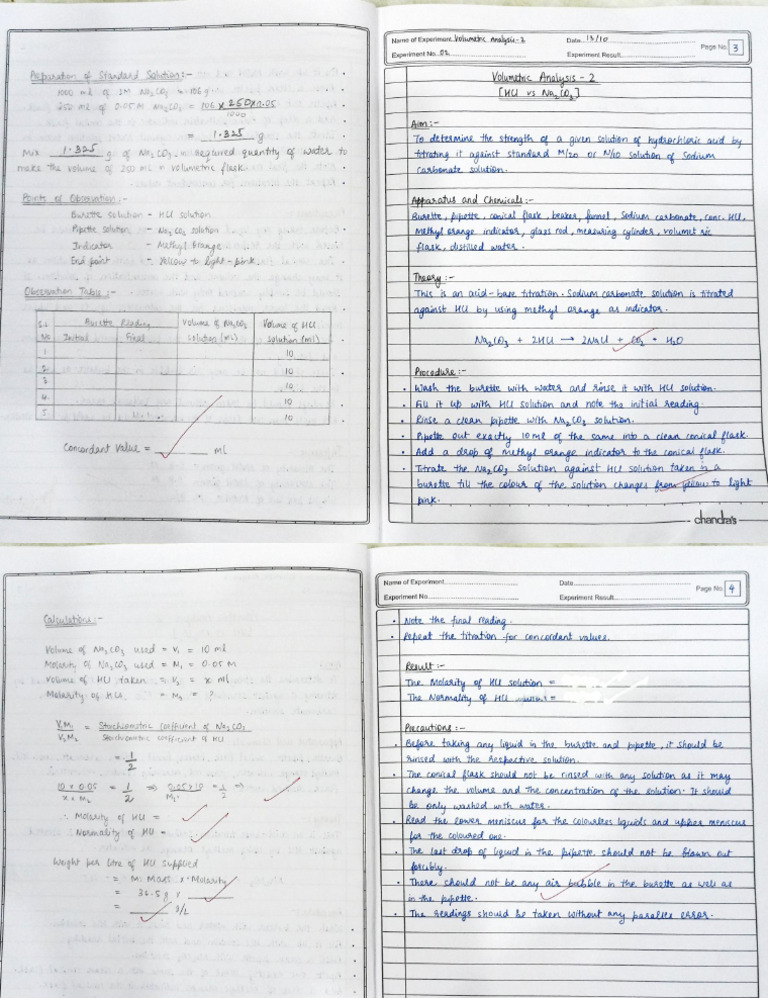 Preparation of Standard Solution :-
1000 ml of 1M Na2CO3 = 106 gm
250 ml of 0.05M Na2CO3 = 106 x 250 x 0.05
1000
= 1.325 g
Mix 1.325 g of Na2CO3 in required quantity of water to
make the volume of 250 ml volumetric flask.
Points of Observation :-
Burette solution - HCl solution
Pipette solution - Na2CO3 solution
Indicator - Methyl Orange
End point - Yellow to light-pink.
Observation Table :-
S.l No Burette Reading Volume of Na2CO3 solution (ML) Volume of HCl solution (ml)
Initial Final
1 10
2. 10
3 10
4. 10
5 10
Concordant Value = ______ ml
Name of Experiment Volumetric Analysis-2 Date 13/10
Experiment No. 02 Experiment Result Page No. 3
Volumetric Analysis - 2
[HCl vs Na2CO3]
Aim :-
To determine the strength of a given solution of hydrochloric acid by
titrating it against standard M/20 or N/10 solution of Sodium
carbonate solution.
Apparatus and Chemicals :-
Burette, pipette, conical flask, beaker, funnel, Sodium carbonate, conc. HCl,
Methyl orange indicator, glass rod, measuring cylinder, volumet ric
flask, distilled water.
Theory :-
This is an acid-base titration. Sodium carbonate solution is titrated
against HCl by using methyl orange as indicator.
Na2CO3 + 2HCl → 2NaCl + CO2 + H2O
Procedure :-
• Wash the burette with water and rinse it with HCl solution.
• Fill it up with HCl solution and note the initial reading.
• Rinse a clean pipette with Na2CO3 solution.
• Pipette out exactly 10 ml of the same into a clean conical flask.
• Add a drop of methyl orange indicator to the conical flask.
• Titrate the Na2CO3 solution against HCl solution taken in a
burette till the colour of the solution changes from yellow to light
pink.
chandra's
Calculations :-
Volume of Na2CO3 used = V1 = 10 ml
Molarity of Na2CO3 used = M1 = 0.05 M
Volume of HCl taken = V2 = x ml
Molarity of HCl = M2 = ?
V1M1 = Stoichiometric Coefficient of Na2CO3
V2M2 Stoichiometric coefficient of HCl
= 1/2
10 x 0.05 = 1/2 ⇒ 0.05 x 10 = 1/2 ⇒
x x M2
∴ Molarity of HCl =
Normality of HCl =
Weight per litre of HCl supplied
= M. Mass x Molarity
= 36.5g x ______
= ______ g/L
Name of Experiment Date
Experiment No. Experiment Result Page No. 4
• Note the final reading.
• Repeat the titration for concordant values.
Result :-
The Molarity of HCl solution =
The Normality of HCl =
Precautions :-
• Before taking any liquid in the burette and pipette, it should be
rinsed with the respective solution.
• The conical flask should not be rinsed with any solution as it may
change the volume and the concentration of the solution. It should
be only washed with water.
• Read the lower meniscus for the colourless liquids and upper meniscus
for the coloured one.
• The last drop of liquid in the pipette should not be blown out
forcibly.
• There should not be any air bubble in the burette as well as
in the pipette.
• The readings should be taken without any parallex error.